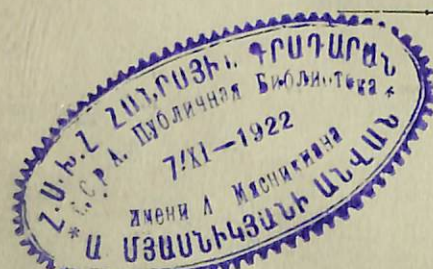 Հ.Ս.Խ.Հ ՀԱՆՐԱՅԻՆ ԳՐԱԴԱՐԱՆ
* С.С.Р.А. Публичная Библиотека *
7/XI—1922
имени А Мясникяна
Ա ՄՅԱՍՆԻԿՅԱՆԻ ԱՆՎԱՆ